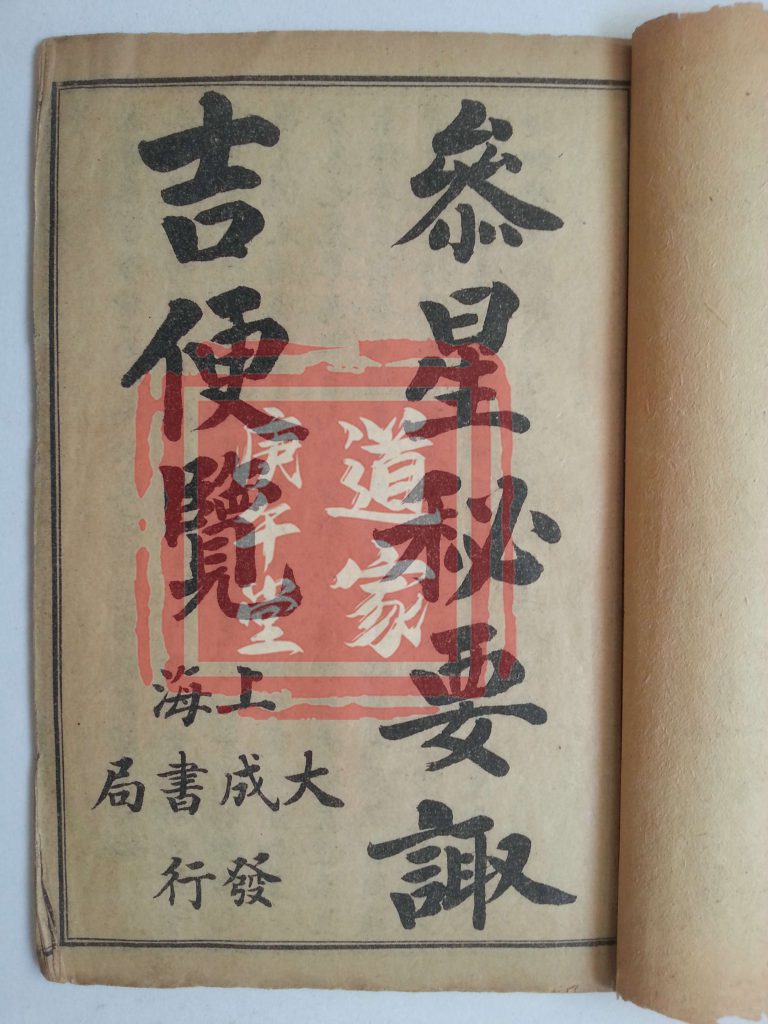 叅星秘要諏
吉便覽
上海
大成書局
發行
道家
庚午堂